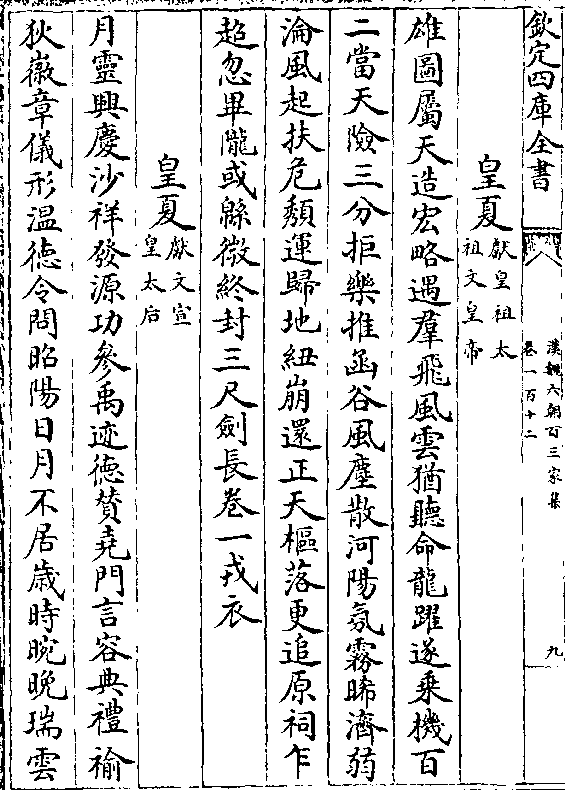 欽定四庫全書
漢魏六朝百三家集
卷一百十二
九
皇夏獻皇祖太
祖文皇帝
雄圖屬天造宏略遇羣飛風雲猶聽命龍躍遂乘機百
二當天險三分拒樂推函谷風塵散河陽氛霧晞濟弱
淪風起扶危頽運歸地紐崩還正天樞落更追原祠乍
超忽畢隴或緜微終封三尺劍長卷一戎衣
皇夏獻文宣
皇太后
月靈興慶沙祥發源功參禹迹德贊堯門言容典禮褕
狄徽章儀形温德令問昭陽日月不居歲時晼晚瑞雲